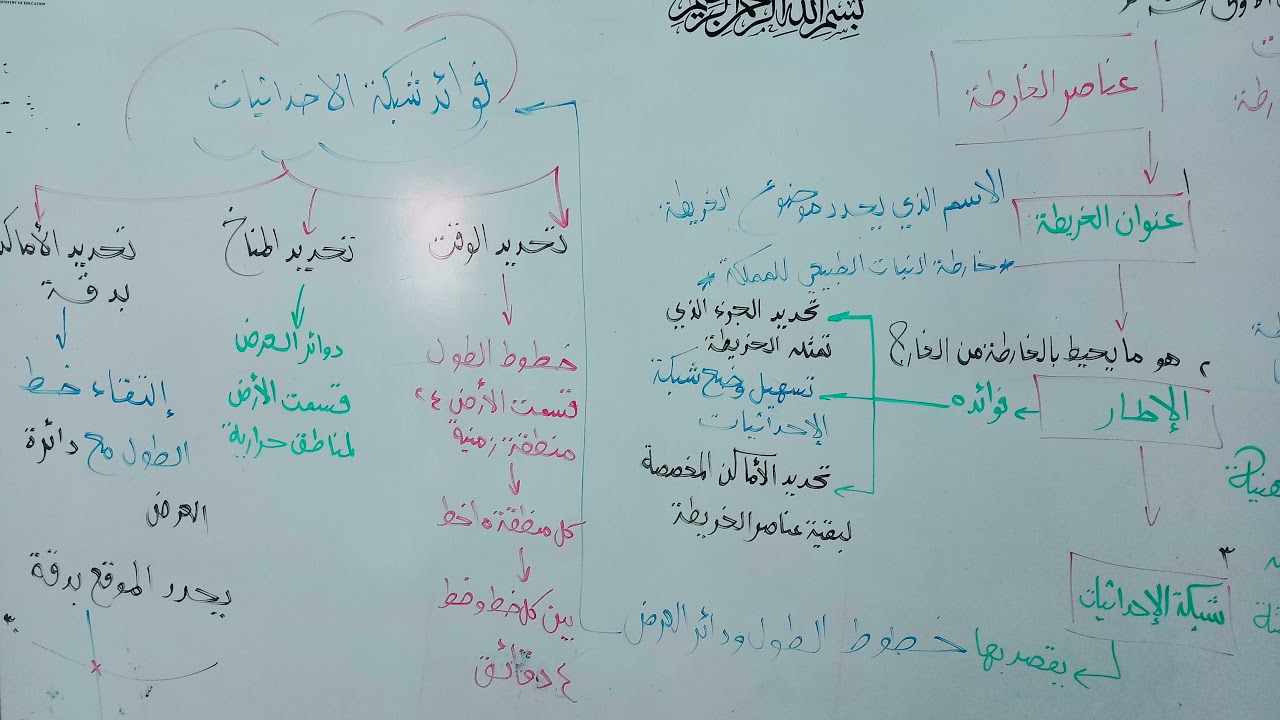 بسم الله الرحمن الرحيم
عناصر الخارطة
١
عنوان الخريطة
الاسم الذي يحدد موضوع الخريطة
* خارطة النبات الطبيعي للمملكة *
٢ هو ما يحيط بالخارطة من الخارج
الإطار
فوائده
تحديد الجزء الذي
تمثله الخريطة
تسهيل وضع شبكة
الإحداثيات
تحديد الأماكن المخصصة
لبقية عناصر الخريطة
٣
شبكة الإحداثيات
يقصد بها خطوط الطول ودائر العرض
فوائد شبكة الاحداثيات
تحديد الوقت
خطوط الطول
قسمت الأرض ٢٤
منطقة زمنية
كل منطقة ١٥ خط
بين كل خط وخط
٤ دقائق
تحديد المناخ
دوائر العرض
قسمت الأرض
لمناطق حرارية
تحديد الأماكن
بدقة
إلتقاء خط
الطول مع دائرة
العرض
يحدد الموقع بدقة